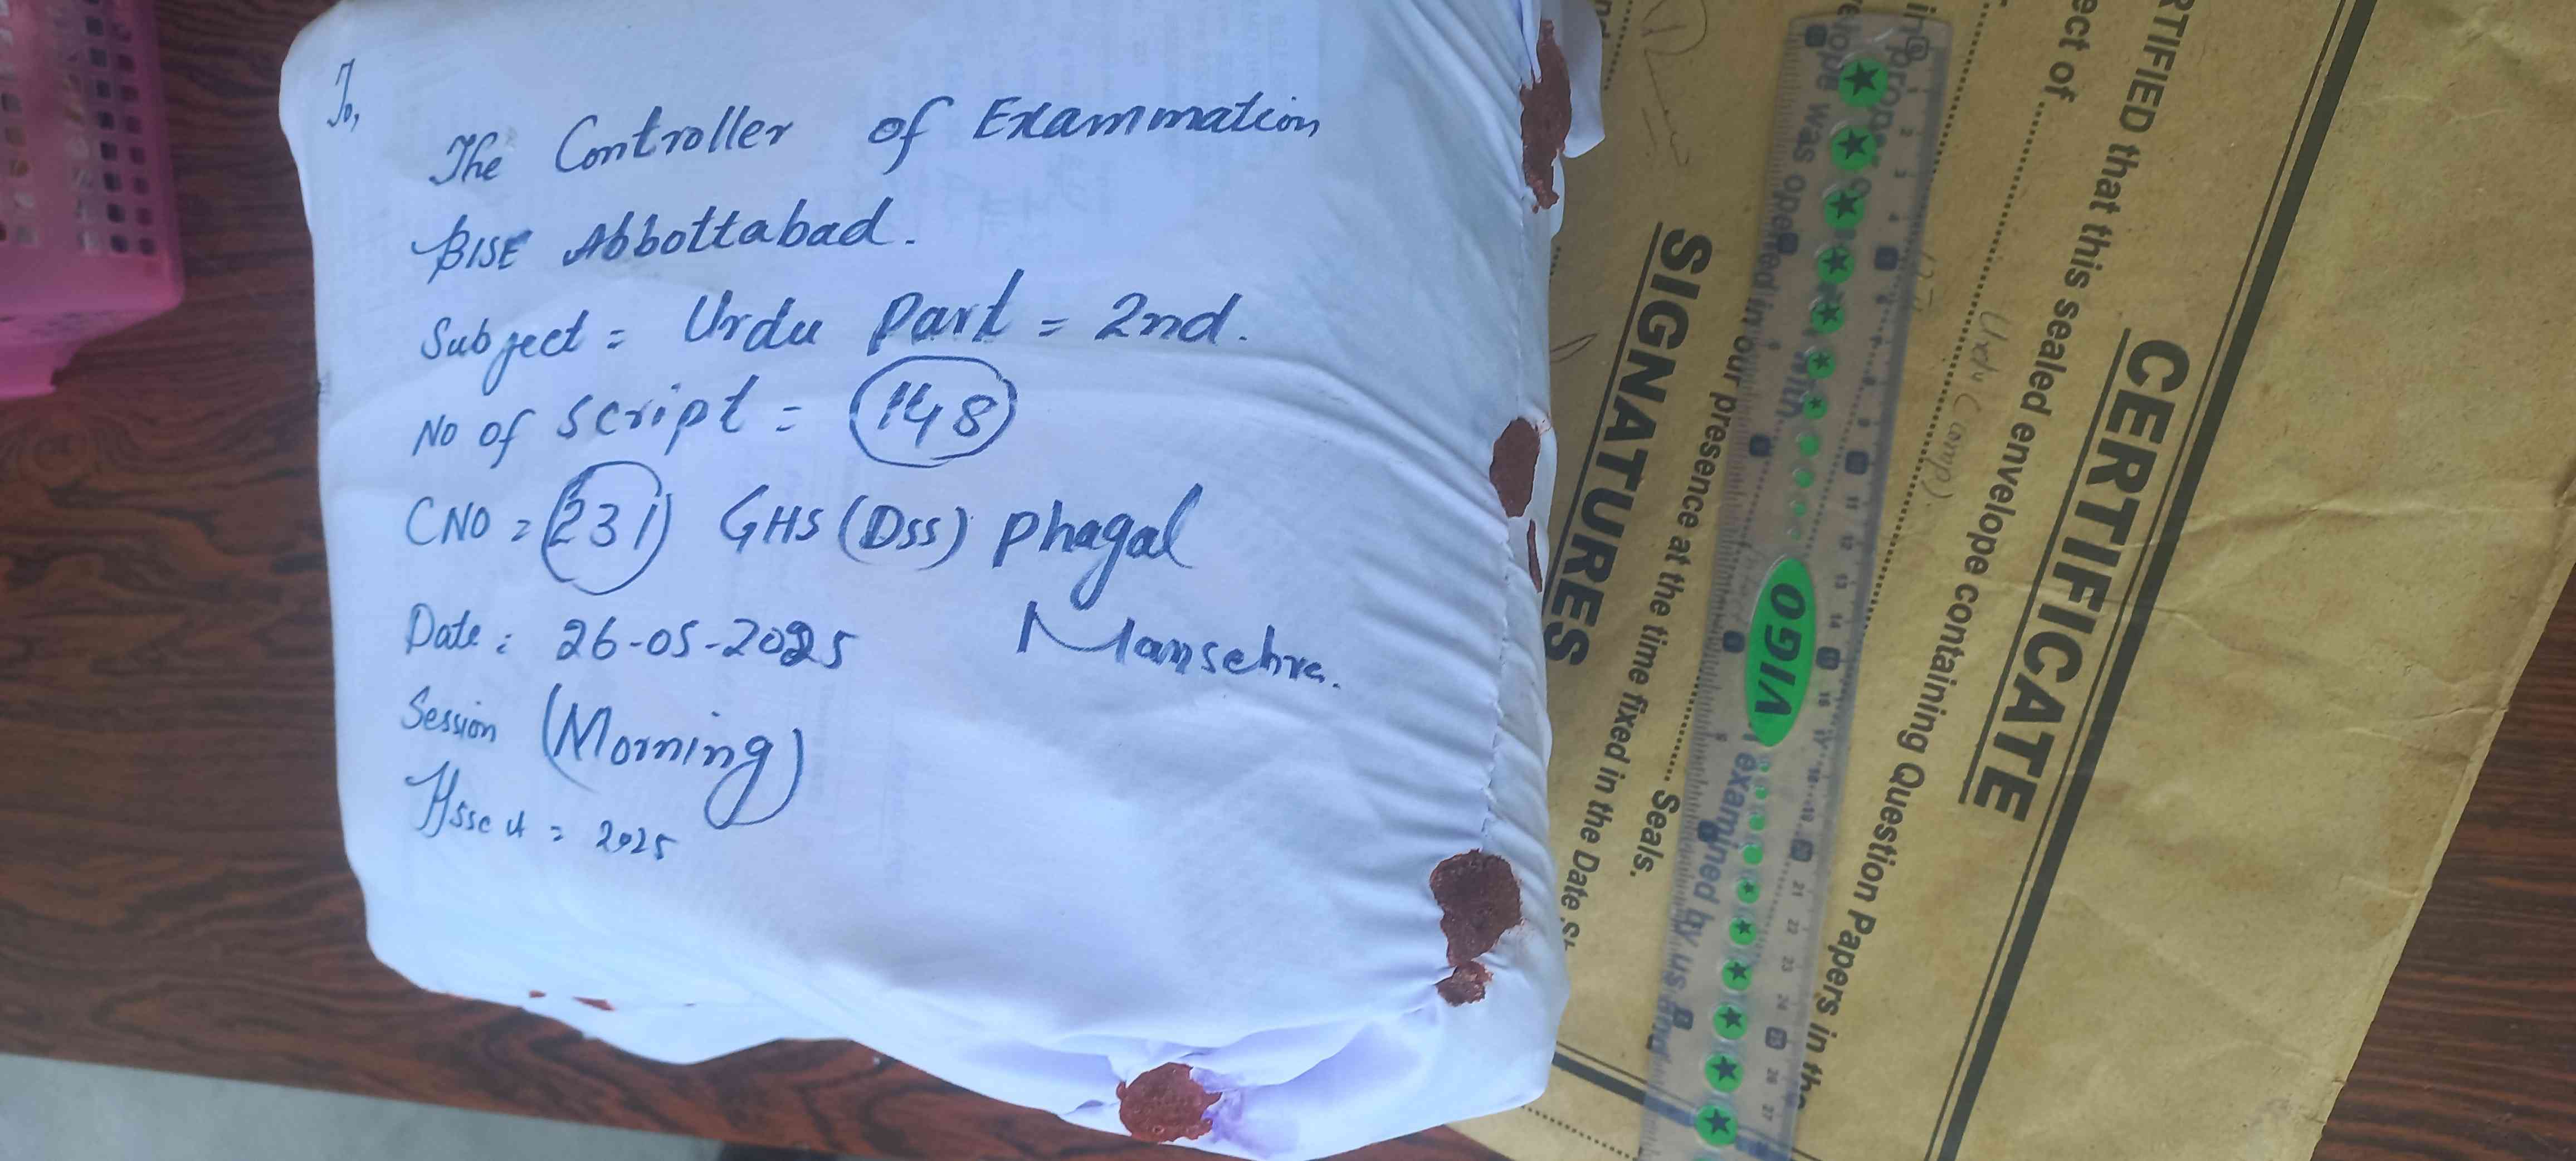 To,
The Controller of Examination
BISE Abbottabad.
Subject = Urdu Part = 2nd.
No of script = 148
CNO = 231 GHS (Dss) Phagal
Mansehra.
Date: 26-05-2025
Session (Morning)
Hssc = 2025
CERTIFICATE
RTIFIED that this sealed envelope containing Question Papers in the
ect of
Urdu (Comp)
in proper
with
examined by us and
elope was opened in our presence at the time fixed in the Date
Seals.
SIGNATURES
VIGO